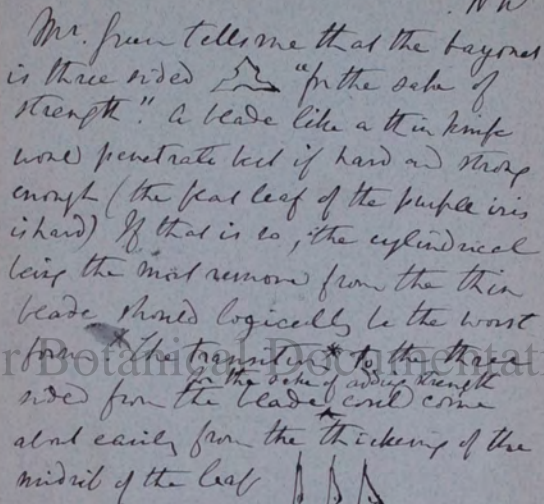 Mr. Green tells me that the bayonet
is three sided "for the sake of
strength". A blade like a thin knife
would penetrate best if hard and strong
enough (the flat leaf of the purple iris
is hard) If that is so, the cylindrical
being the most remove from the thin
blade should logically be the worst
form * The transition * to the three
for the sake of adding strength
sided from the blade could come
about easily from the thickening of the
midrib of the leaf
r Botanical Documentati